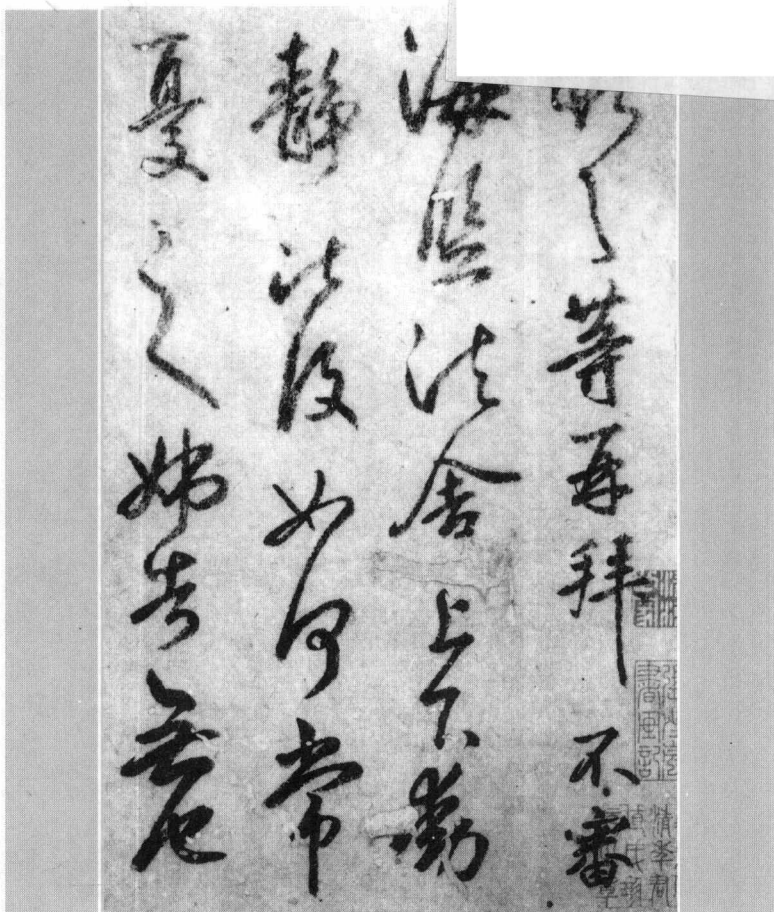 等再拜 不審
海監法舍上下動
靜比復如何常
憂之姊告無他